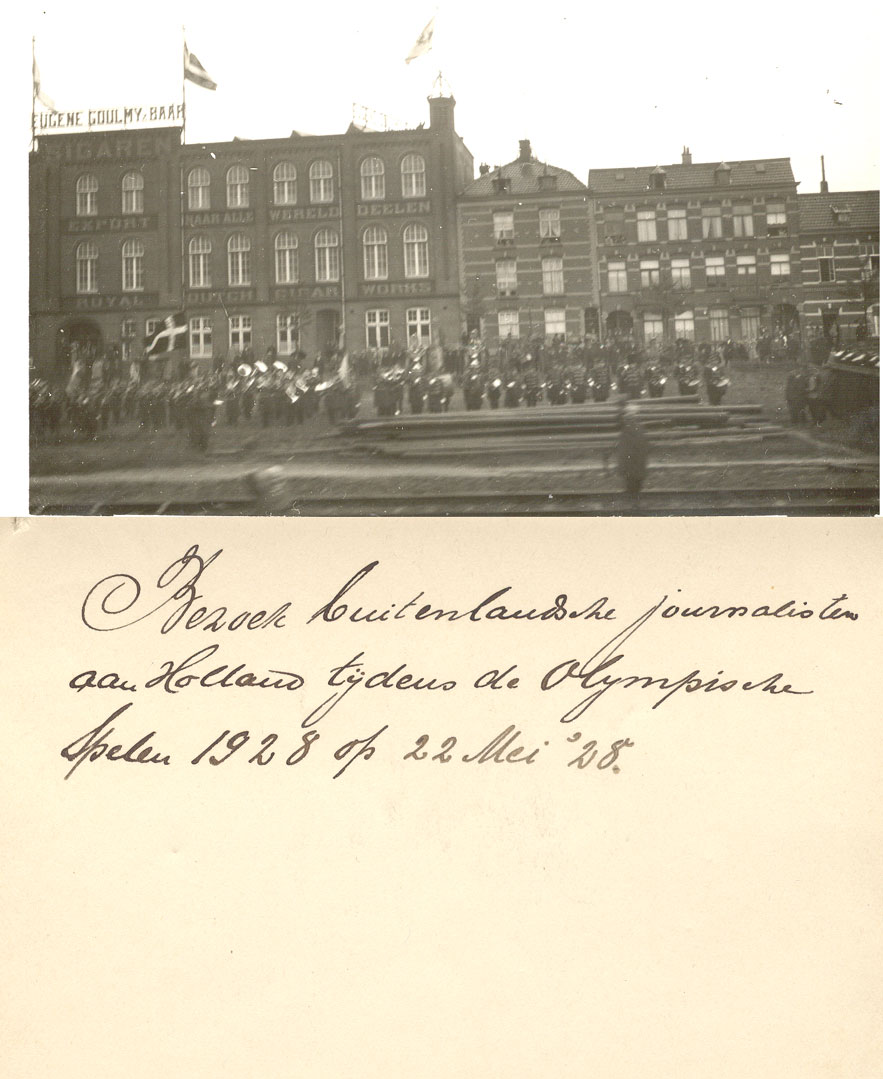 EUGENE GOULMY & BAAR
SIGAREN
EXPORT NAAR ALLE WERELD DEELEN
ROYAL DUTCH CIGAR WORKS
Bezoek buitenlandsche journalisten
aan Holland tijdens de Olympische
Spelen 1928 op 22 Mei '28.